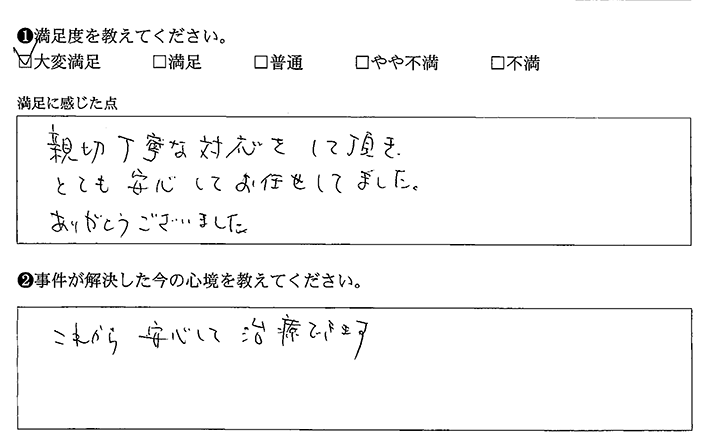 ❶満足度を教えてください。
☑大変満足 □満足 □普通 □やや不満 □不満
満足に感じた点
親切丁寧な対応をして頂き
とても安心してお任せしてました。
ありがとうございました
❷事件が解決した今の心境を教えてください。
これから安心して治療できます